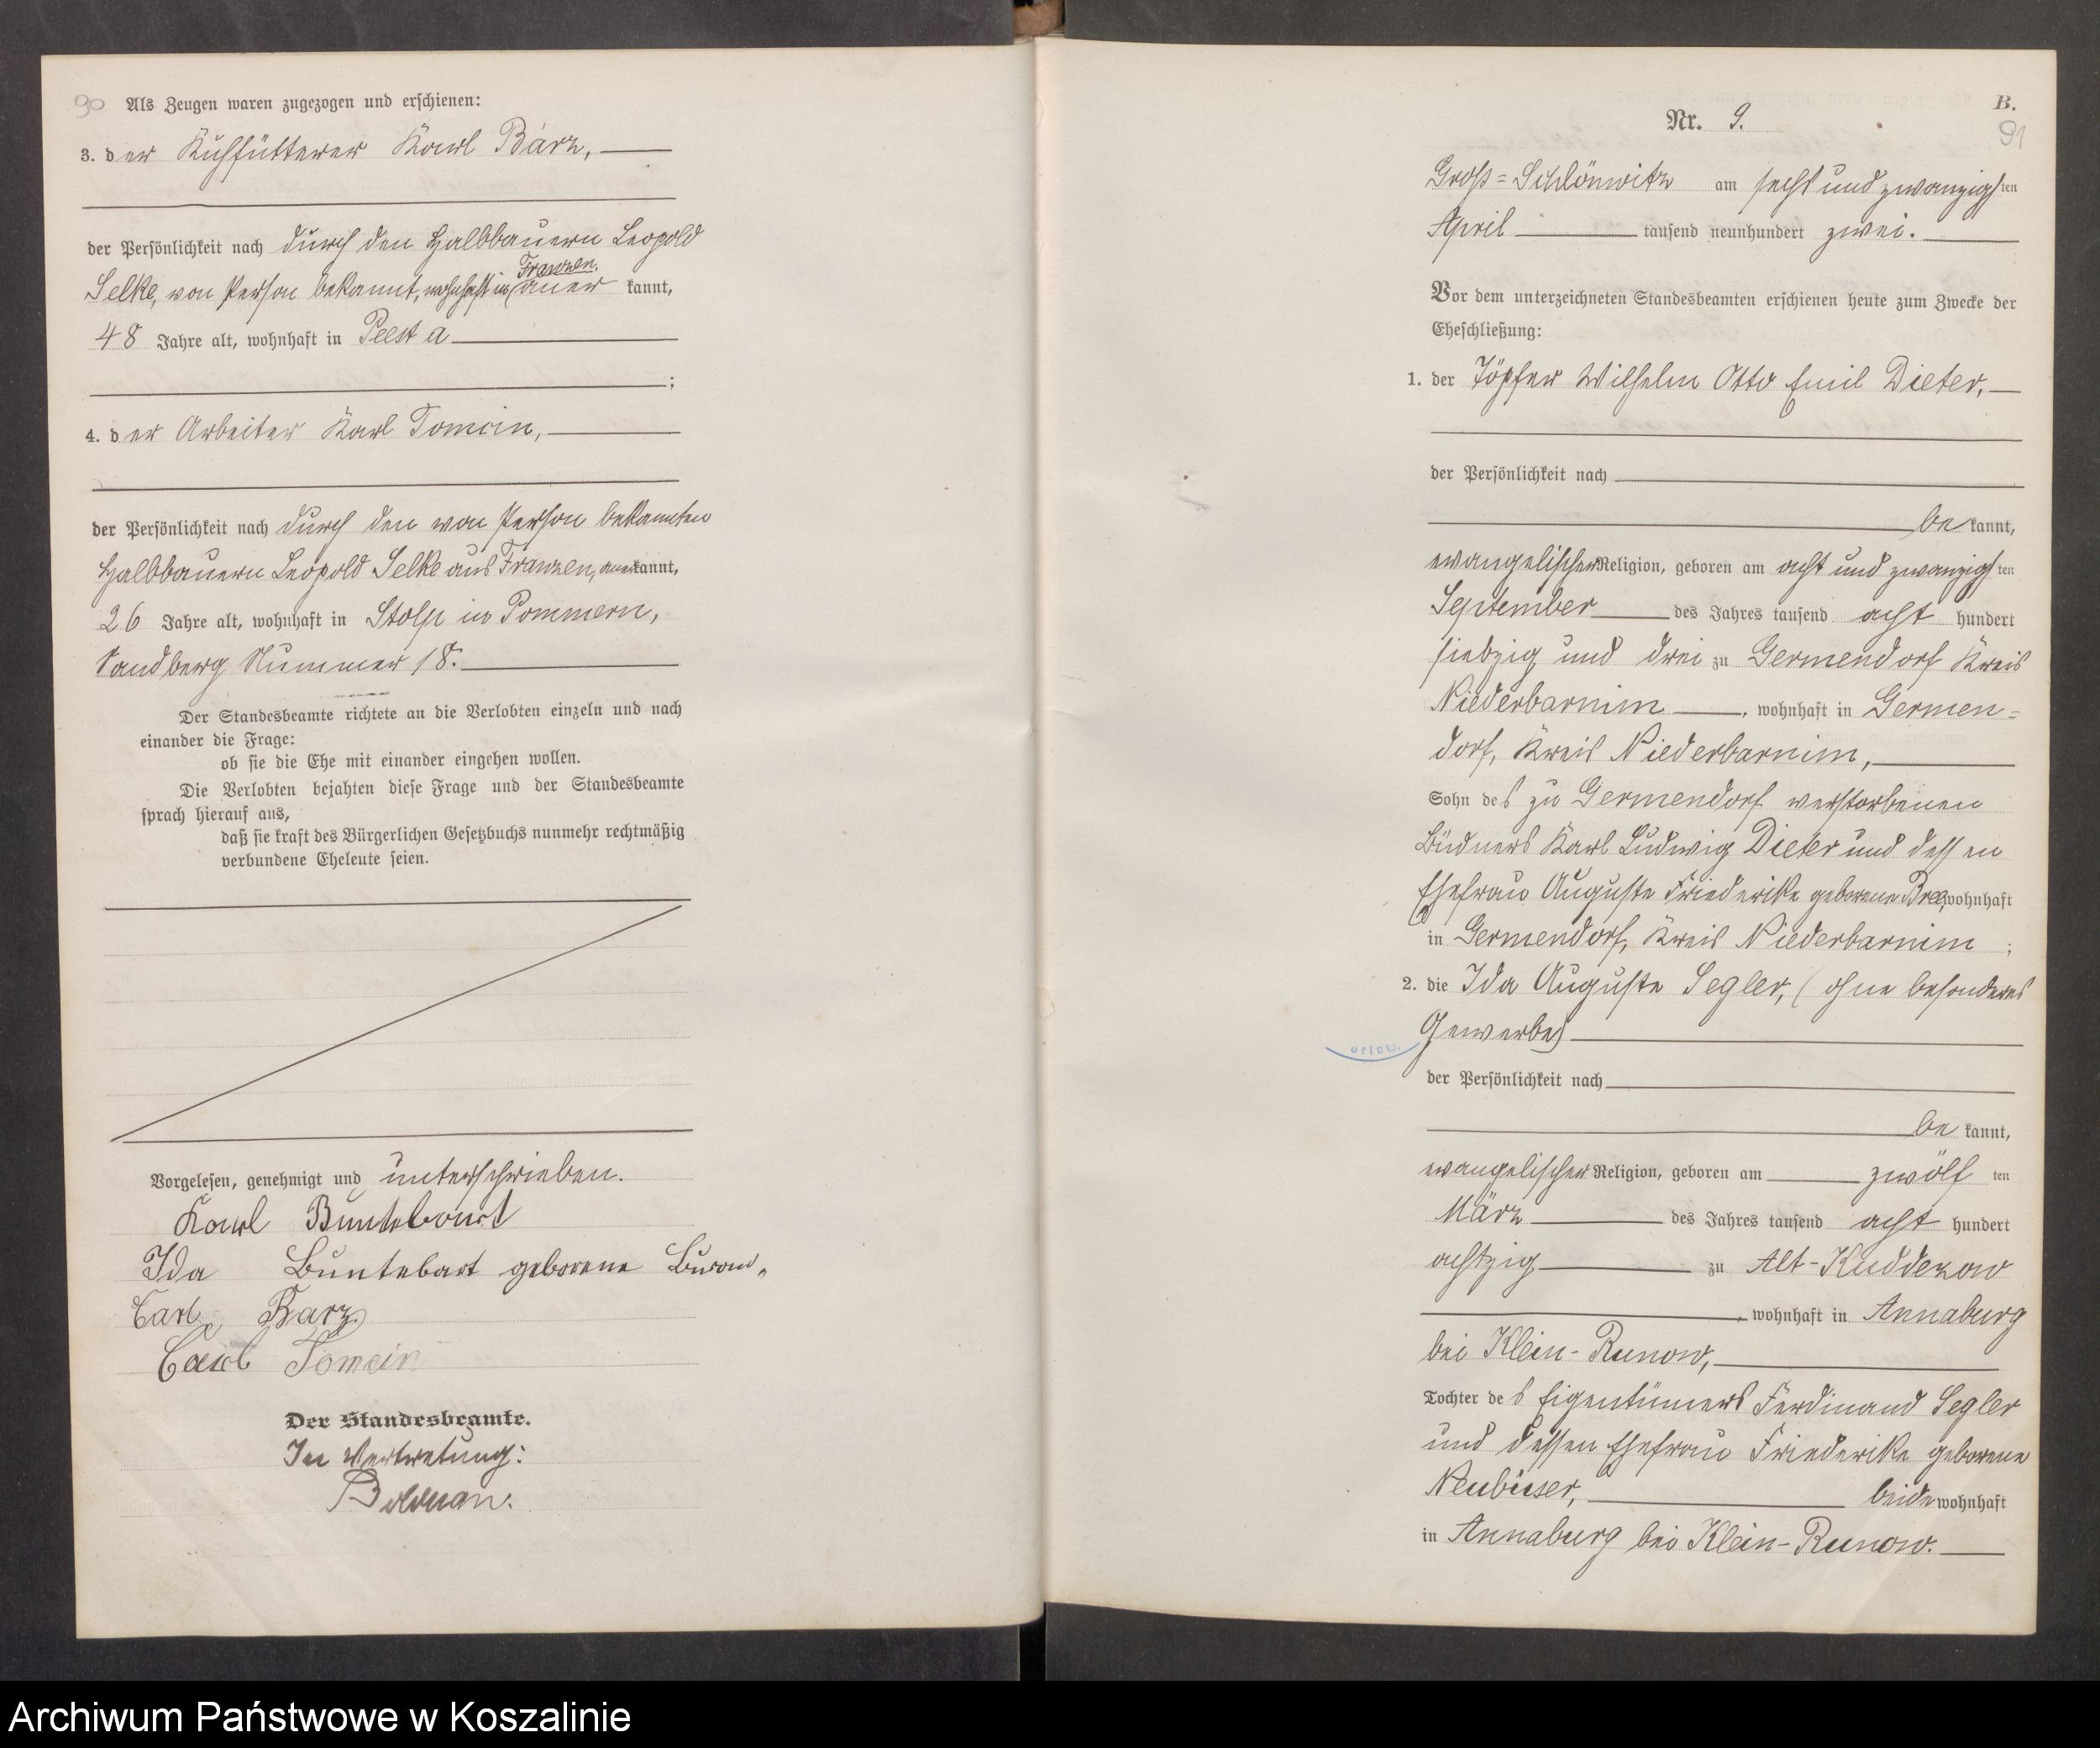 90
Als Zeugen waren zugezogen und erschienen:
3. der Kuhfütterer Karl Bärz,
der Persönlichkeit nach durch den Halbbauern Leopold
Franzen.
Selke, von Person bekannt, wohnhaft in aner kannt,
48 Jahre alt, wohnhaft in Peest a
;
4. der Arbeiter Karl Tomcin,
der Persönlichkeit nach durch den von Person bekannten
Halbbauern Leopold Selke aus Franzen, anerkannt,
26 Jahre alt, wohnhaft in Stolp in Pommern,
Sandberg Nummer 18.
Der Standesbeamte richtete an die Verlobten einzeln und nach
einander die Frage:
ob sie die Ehe mit einander eingehen wollen.
Die Verlobten bejahten diese Frage und der Standesbeamte
sprach hierauf aus,
daß sie kraft des Bürgerlichen Gesetzbuchs nunmehr rechtmäßig
verbundene Eheleute seien.
Vorgelesen, genehmigt und unterschrieben.
Karl Buntebart
Ida Buntebart geborene
Carl Barz
Carl Tomcin
Der Standesbeamte.
In Vertretung:
B.
Nr. 9.
91
Groß=Schlönwitz am sechs und zwanzigsten
April tausend neunhundert zwei.
Vor dem unterzeichneten Standesbeamten erschienen heute zum Zwecke der
Eheschließung:
1. der Töpfer Wilhelm Otto Emil Dieter,
der Persönlichkeit nach
be kannt,
evangelischer Religion, geboren am acht und zwanzigsten
September des Jahres tausend acht hundert
siebzig und drei zu Germendorf Kreis
Niederbarnim, wohnhaft in Germen=
dorf, Kreis Niederbarnim,
Sohn des zu Germendorf verstorbenen
Büdners Karl Ludwig Dieter und dessen
Ehefrau Auguste Friederike geborene wohnhaft
in Germendorf, Kreis Niederbarnim ;
2. die Ida Auguste Segler, (ohne besonderes
Gewerbe)
der Persönlichkeit nach
be kannt,
evangelischer Religion, geboren am zwölf ten
März des Jahres tausend acht hundert
achtzig zu Alt-Kuddezow
, wohnhaft in Annaburg
bei Klein-Runow,
Tochter des Eigentümers Ferdinand Segler
und dessen Ehefrau Friederike geborene
Neubüser, beide wohnhaft
in Annaburg bei Klein-Runow.
Archiwum Państwowe w Koszalinie